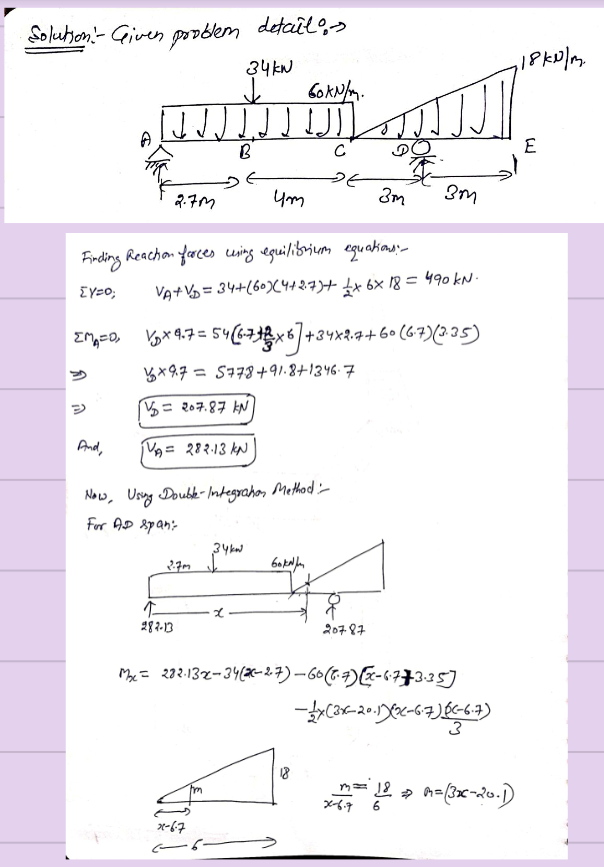 Solution:- Given problem detail:→
34 kN
60 kN/m.
18 kN/m.
A B C D E
2.7m 4m 3m 3m
Finding Reaction forces using equilibrium equations:-
ΣY=0; VA+VD = 34+(60)(4+2.7)+ 1/2 × 6 × 18 = 490 kN.
ΣMA=0, VD×9.7 = 54[6.7+2/3×6]+34×2.7+60(6.7)(3.35)
⇒ VD×9.7 = 577.8+91.8+1346.7
⇒ VD = 207.87 kN
And, VA = 282.13 kN
Now, Using Double-Integration Method:-
For AD span:-
34kN
2.7m 60kN/m
x
282.13 207.87
Mx = 282.13x-34(x-2.7)-60(6.7)[x-6.7+3.35]
-1/2×(3x-20.1)(x-6.7)(x-6.7)/3
18
m m/(x-6.7) = 18/6 ⇒ m=(3x-20.1)
x-6.7
6